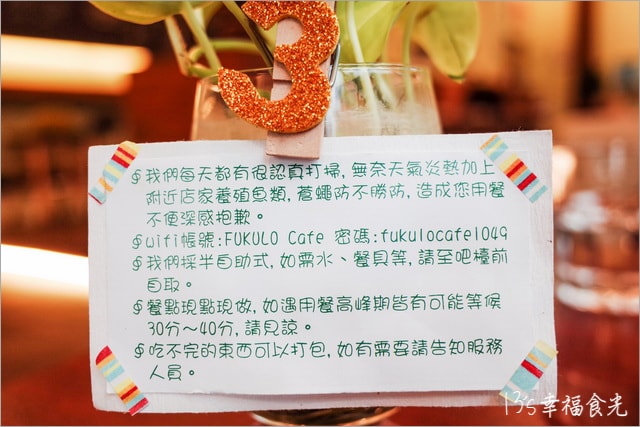 3
§我們每天都有很認真打掃,無奈天氣炎熱加上
附近店家養殖魚類,蒼蠅防不勝防,造成您用餐
不便深感抱歉。
§wifi帳號:FUKULO Cafe 密碼:fukulocafe1049
§我們採半自助式,如需水、餐具等,請至吧檯前
自取。
§餐點現點現做,如遇用餐高峰期皆有可能等候
30分～40分,請見諒。
§吃不完的東西可以打包,如有需要請告知服務
人員。
13's幸福食光